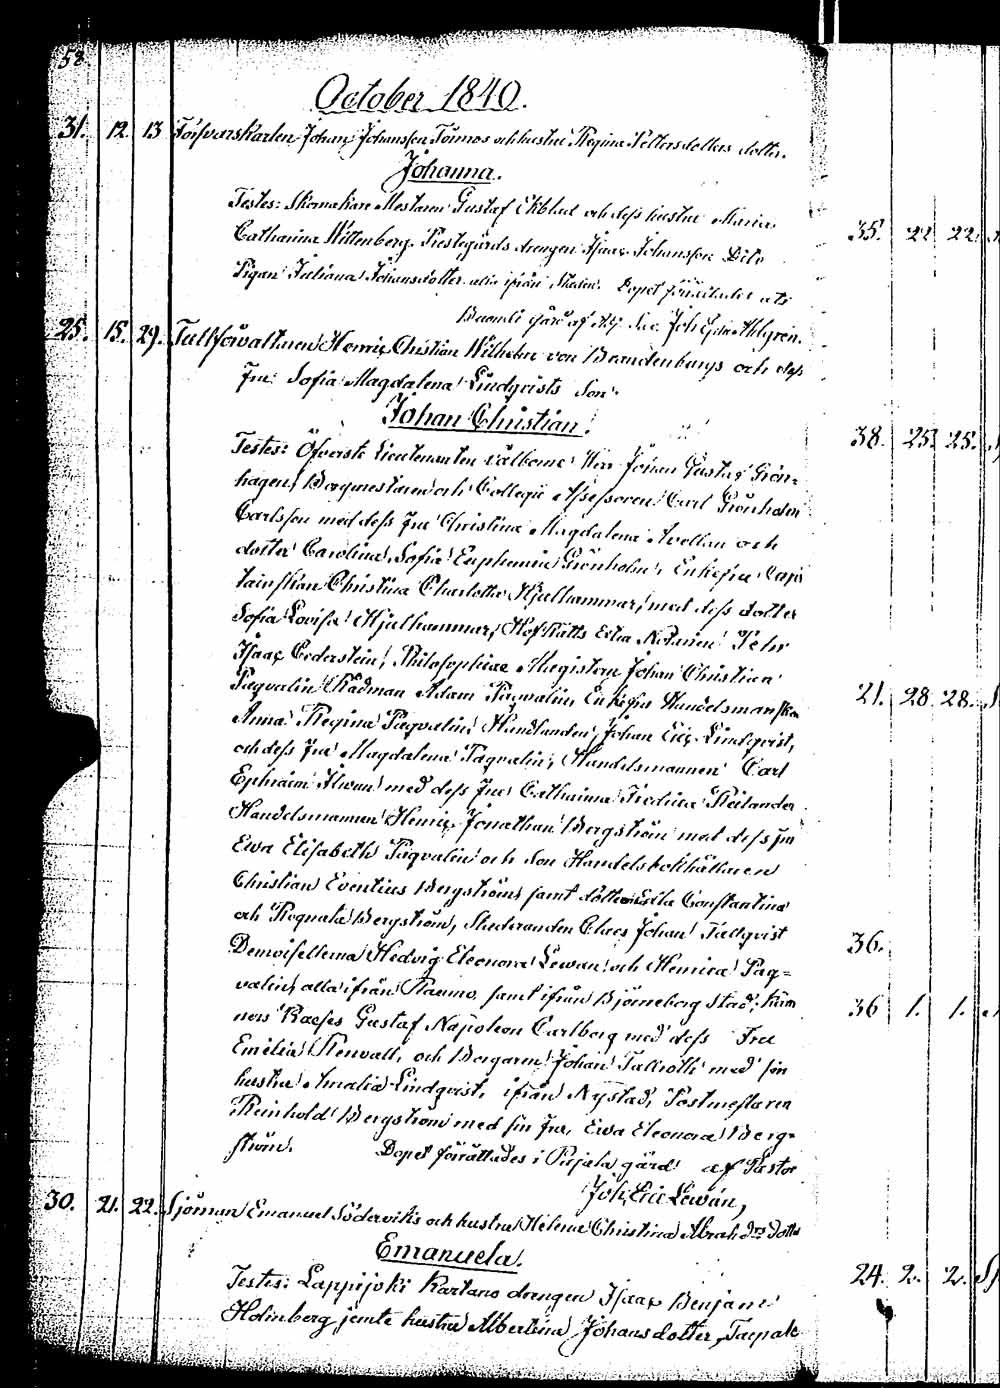 58
October 1840.
31. 12. 13 Johan Johansson Tönnos och hustru Regina Pettersdotters dotter.
Johanna.
Testes: Skomakare Mestaren Gustaf Ekblad och dess hustru Maria
Catharina Wittenberg. Prestegårds drengen Isaac Johansson Dito
Pigan Juliana Johansdotter alla ifrån Dopet förrättades uti
gård af Joh Ahlgren.
25. 15. 29. Tullförvaltaren Henric Christian Wilhelm von Brandenburgs och dess
Fru Sofia Magdalena Lindqvists Son
Johan Christian.
Testes: Öfverste Lieutenanten välborne Herr Johan Gustaf Grön-
hagen, Borgmestaren och Collegii Assessoren Carl Grönholm
Carlsson med dess Fru Christina Magdalena Avellan och
dotter Carolina Sofia Euphemia Grönholm, Enkefru Capi
tainskan Christina Charlotta Hjulhammar, med dess dotter
Sofia Lovisa Hjulhammar, HofRätts Extra Notarien Pehr
Isaac Cederstein, Philosophiae Magistern Johan Christian
Paqvalin Rådman Adam Paqvalin, Enkefru Handelsmanskan
Anna Regina Paqvalin, Handlanden Johan Eric Lindqvist,
och dess Fru Magdalena Paqvalin, Handelsmannen Carl
Ephraim med dess Fru Catharina Fredrica
Handelsmannen Henric Jonathan Bergström med dess Fru
Ewa Elisabeth Paqvalin och Son Handelsbokhållaren
Christian Eventius Bergström samt döttrarne Constantina
och Regnata Bergström, Studeranden Claes Johan Tallqvist
Demoisellerna Hedvig Eleonora Lewan och Henrica Paq-
valin, alla ifrån Raumo, samt ifrån Björneborg Stad,
ners Gustaf Napoleon Carlberg med dess Fru
Emelia Renvall, och Borgaren Johan Tallroth med sin
hustru Amalia Lindqvist, ifrån Nystad, Postmestaren
Reinhold Bergström med sin Fru Ewa Eleonora Berg-
ström. Dopet förrättades i gård af Pastor
Joh: Eric Lewan,
30. 21. 22. Sjöman Emanuel Söderviks och hustru Helena Christina Abrah:drs dotter
Emanuela.
Testes: Lappijoki Kartano drengen Isaac Benjam:
Holmberg jemte hustru Albertina Johansdotter,
35. 22 22.
38. 25. 25.
21. 28 28.
36.
36 1. 1.
24. 2. 2.